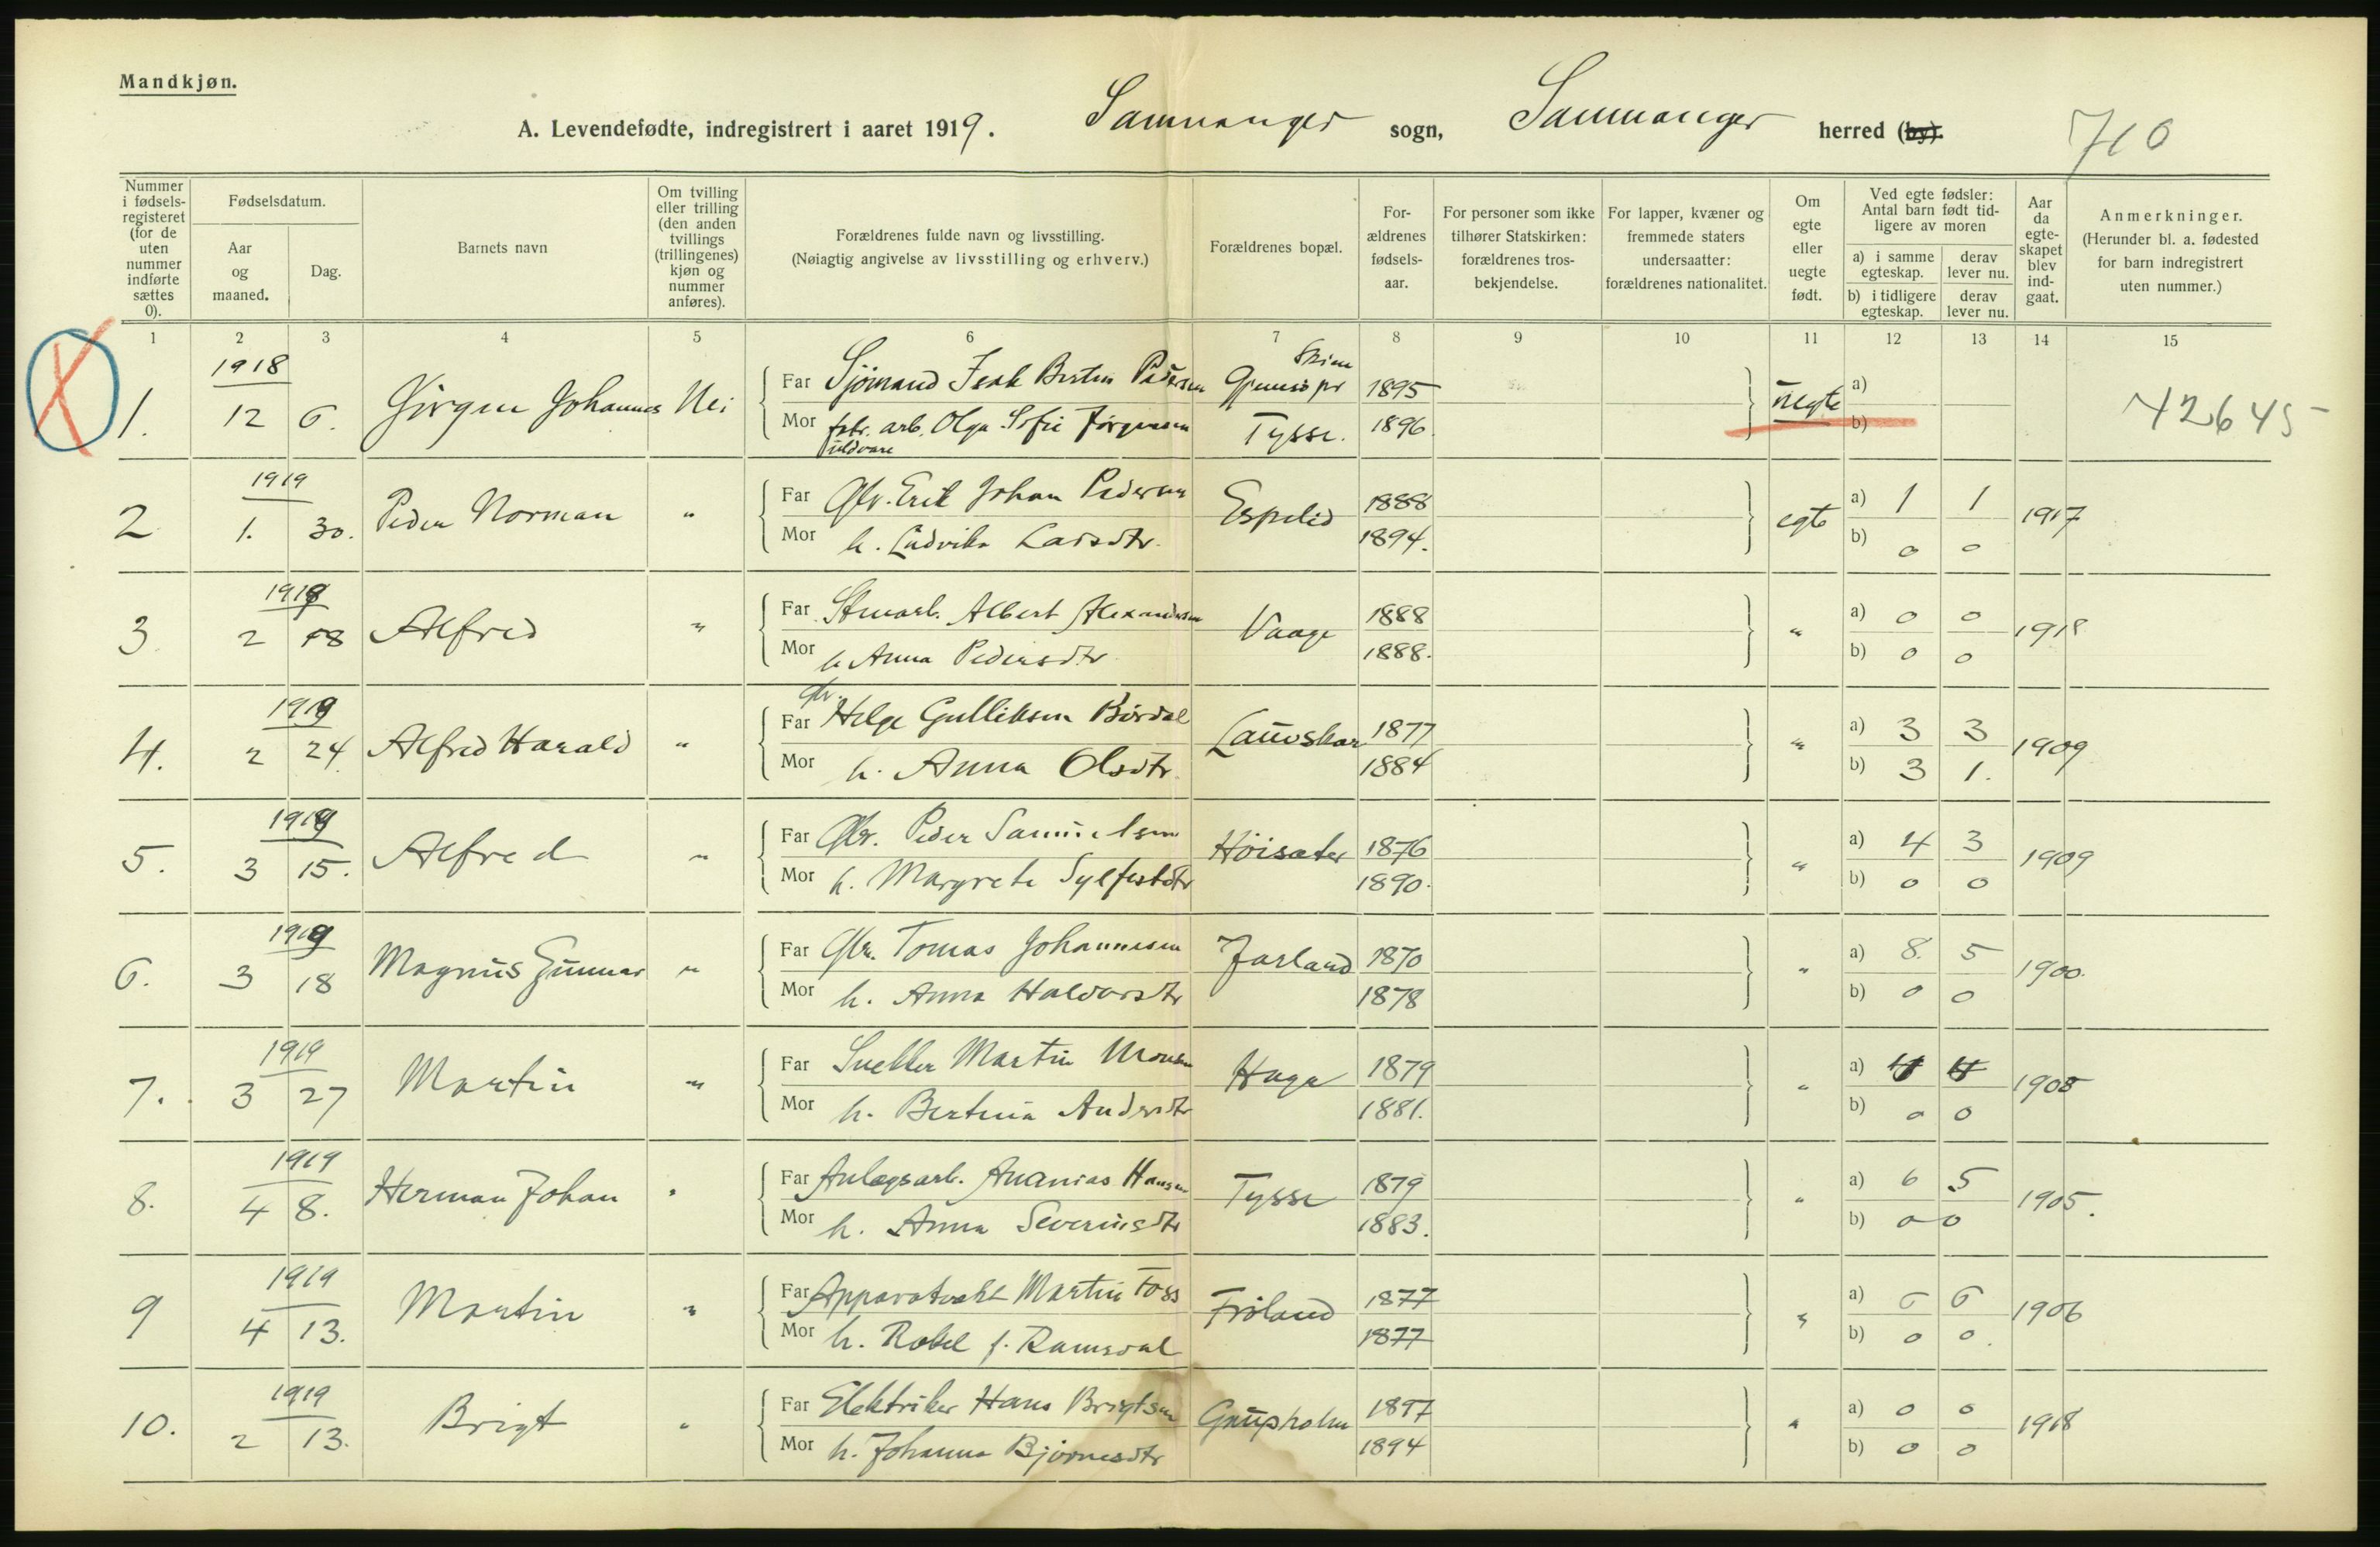 Mandkjøn.
A. Levendefødte, indregistrert i aaret 1919. Samnanger sogn, Samnanger herred (by). 710
Nummer i fødsels-registeret (for de uten nummer indførte sættes 0).
Fødselsdatum.
Aar og maaned.
Dag.
Barnets navn
Om tvilling eller trilling (den anden tvillings (trillingenes) kjøn og nummer anføres).
Forældrenes fulde navn og livsstilling.
(Nøiagtig angivelse av livsstilling og erhverv.)
Forældrenes bopæl.
For-ældrenes fødsels-aar.
For personer som ikke tilhører Statskirken: forældrenes tros-bekjendelse.
For lapper, kvæner og fremmede staters undersaatter: forældrenes nationalitet.
Om egte eller uegte født.
Ved egte fødsler: Antal barn født tid-ligere av moren
a) i samme egteskap.
derav lever nu.
b) i tidligere egteskap.
derav lever nu.
Aar da egte-skapet blev ind-gaat.
Anmerkninger.
(Herunder bl. a. fødested for barn indregistrert uten nummer.)
1 2 3 4 5 6 7 8 9 10 11 12 13 14 15
1918
1. 12 6. Jörgen Johannes Nei Far Sjömand Isak Bertin Pedersen 1895 uegte a)
Mor fabr. arb. Olga Sofie Jörgensen Tysse. 1896. b)
uldvare
42645
1919
2 1. 30. Peder Norman " Far Gbr. Erik Johan Pedersen Espelid 1888 egte a) 1 1 1917
Mor h. Ludvika Larsdtr. 1894. b) 0 0
1919
3. 2 18 Alfred " Far Albert Alexandersen Vaage 1888 " a) 0 0 1918
Mor h Anna Pedersdtr 1888. b) 0 0
1919
4. 2 24 Alfred Harald " Far Gbr. Helge Gulliksen Børdal Lauvskar 1877 " a) 3 3 1909
Mor h. Anna Olsdtr. 1884 b) 3 1.
1919
5. 3 15. Alfred " Far Gbr. Peder Samuelsen Höisæter 1876 " a) 4 3 1909
Mor h. Margrete Sylfestdtr 1890. b) 0 0
1919
6. 3 18 Magnus Gunnar " Far Gbr. Tomas Johannesen Jarland 1870 " a) 8. 5 1900.
Mor h. Anna Haldorsdtr 1878 b) 0 0
1919
7. 3 27 Martin " Far Snekker Martin Monsen Haga 1879 " a) 4 4 1905
Mor h. Bertina Andersdtr 1881. b) 0 0
1919
8. 4 8. Herman Johan " Far Anlægsarb. Ananias Hansen Tysse 1879 " a) 6 5 1905.
Mor h. Anna Severinsdtr 1883. b) 0 0
1919
9 4 13. Martin " Far Apparatvakt Martin Foss Fröland 1877 " a) 6 6 1906
Mor h. Rakel f. Ramsdal 1877 b) 0 0.
1919
10. 2 13. Brigt " Far Elektriker Hans Brigtsen Gaupholm 1897 " a) 0 0 1918
Mor h. Johanna Bjørnesdtr 1894 b) 0 0